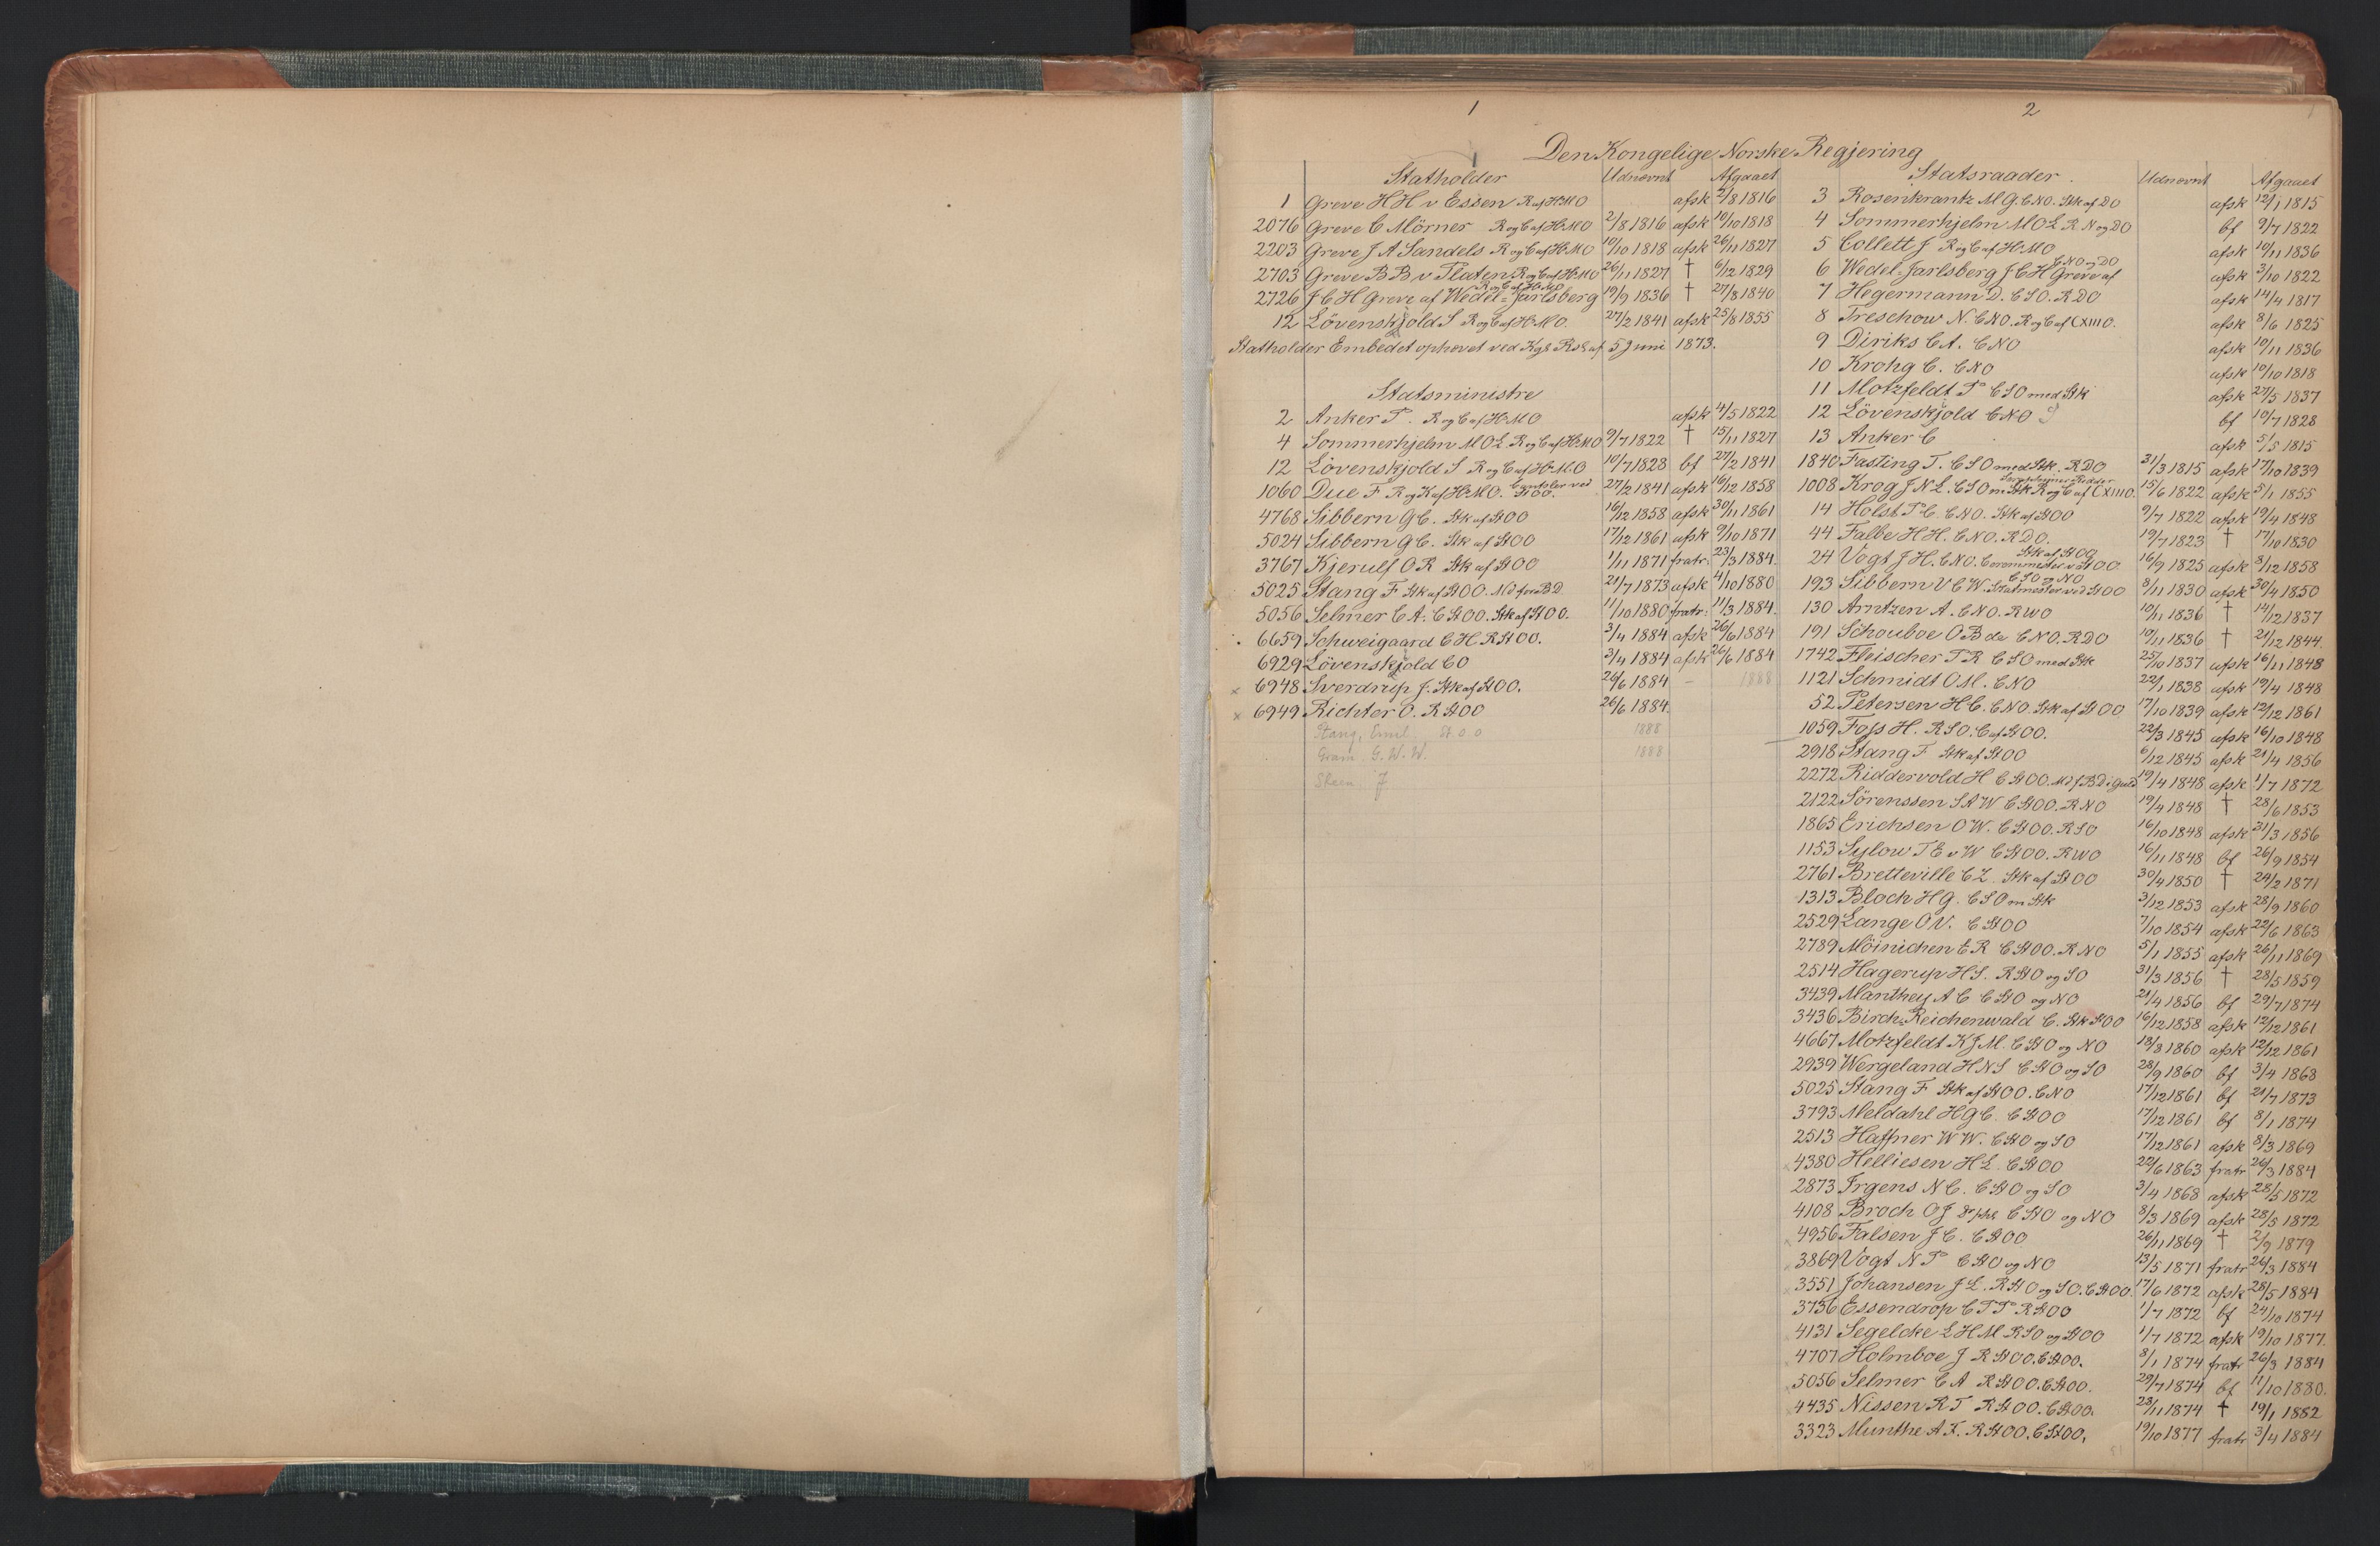 1
2
Den Kongelige Norske Regjering
Statholder Udnævnt Afgaaet
1 Greve H H v Essen R af H.M.O afsk 2/8 1816
2076 Greve C Mörner R og C af H.M.O 2/8 1816 afsk 10/10 1818
2203 Greve J A Sandels R og C af H.M.O 10/10 1818 afsk 26/11 1827
2703 Greve B B v Platen R og C af H.M.O 26/11 1827 † 6/12 1829
2726 J C H Greve af Wedel-Jarlsberg R og C af H.M.O 19/9 1836 † 27/8 1840
12 Lövenskjold S R og C af H.M.O. 27/2 1841 afsk 25/8 1855
Statholder Embedet ophævet ved Kgl. Res af 5 Juni 1873.
Statsministre
2 Anker P. R og C af H.M.O afsk 4/5 1822
4 Sommerhjelm M O L R og C af H.M.O 9/7 1822 † 15/11 1827
12 Lövenskjold S R og C af H.M.O 10/7 1828 bf 27/2 1841
1060 Due F R og K af H.M.O. Cantsler ved St.OO. 27/2 1841 afsk 16/12 1858
4768 Sibbern G C. Stk af St OO 16/12 1858 afsk 30/11 1861
5024 Sibbern G C. Stk af St OO 17/12 1861 afsk 9/10 1871
3767 Kjerulf O R Stk af St OO 1/11 1871 fratr. 23/3 1884.
5025 Stang F Stk af St OO. Md for B D 21/7 1873 afsk 4/10 1880
5056 Selmer C A. C St OO. Stk af St OO. 11/10 1880 fratr. 11/3 1884.
6659 Schweigaard C H R St OO. 3/4 1884 afsk 26/6 1884
6929 Lövenskjold C O 3/4 1884 afsk 26/6 1884
x 6948 Sverdrup J. Stk af St OO. 26/6 1884 - 1888
x 6949 Richter O. R St OO 26/6 1884.
Stang, Emil. St. O. O 1888
Gram. G. W. W. 1888
Steen. J
Statsraader. Udnævnt Afgaaet
3 Rosenkrantz M G. C N O. Stk af D O afsk 12/1 1815
4 Sommerhjelm M O L R N og D O bf 9/7 1822
5 Collett J R og C af H.M.O afsk 10/11 1836
6 Wedel-Jarlsberg J C H Greve af C N O og D O afsk 3/10 1822
7 Hegermann D. C S O. R D O afsk 14/4 1817
8 Treschow N. C N O. R og C af C XIII O. afsk 8/6 1825
9 Diriks C A. C N O afsk 10/11 1836
10 Krohg C. C N O afsk 10/10 1818
11 Motzfeldt P C S O med Stk afsk 27/5 1837
12 Lövenskjold C N O S bf 10/7 1828
13 Anker C afsk 5/5 1815
1840 Fasting T. C S O med Stk. R D O 31/3 1815 afsk 17/10 1839
1008 Krog J N L. C S O m Stk R og C af C XIII O. 15/6 1822 afsk 5/1 1855
14 Holst P C C N O. Stk af St OO 9/7 1822 afsk 19/4 1848
44 Falbe H H. C N O. R D O. 19/7 1823 † 17/10 1830
24 Vogt J H. C N O. Ceremonimester v St OO. Stk af St OO 16/9 1825 afsk 8/12 1858
193 Sibbern V C W. Skatmester ved St OO C S O og N O 8/11 1830 afsk 30/4 1850
130 Arntzen A. C N O. R W O 10/11 1836 † 14/12 1837
191 Schouboe O B de C N O. R D O 10/11 1836 † 21/12 1844.
1742 Fleischer P R C S O med Stk 25/10 1837 afsk 16/11 1848
1121 Schmidt O M. C N O 22/1 1838 afsk 19/4 1848
52 Petersen H C. C N O. Stk af St OO 17/10 1839 afsk 12/12 1861
1059 Foss H. R S O. C af St OO. 22/3 1845 afsk 16/10 1848
2918 Stang F Stk af St OO 6/12 1845 afsk 21/4 1856
2272 Riddervold H C St OO. Md f B D i Guld 19/4 1848 afsk 1/7 1872
2122 Sörenssen S A W C St OO. R N O 19/4 1848 † 28/6 1853
1865 Erichsen O W. C St OO. R S O 16/10 1848 afsk 31/3 1856
1153 Sylow T E v W C St OO. R W O 16/11 1848 bf 26/9 1854
2761 Bretteville C Z. Stk af St OO 30/4 1850 † 24/2 1871
1313 Bloch H G. C S O m Stk 3/12 1853 afsk 28/9 1860
2529 Lange O V. C St OO 7/10 1854 afsk 22/6 1863
2789 Möinichen E R C St OO. R N O 5/1 1855 afsk 26/11 1869
2514 Hagerup H S. R St O og S O 31/3 1856 † 28/5 1859
3439 Manthey A C C St O og N O 21/4 1856 bf 29/7 1874
3436 Birch-Reichenwald C. Stk St OO 16/12 1858 afsk 12/12 1861
4667 Motzfeldt K J M. C St O og N O 18/8 1860 afsk 12/12 1861
2939 Wergeland H N S C St O og S O 28/9 1860 bf 3/4 1868
5025 Stang F Stk af St OO. C N O 17/12 1861 bf 21/7 1873
3793 Meldahl H G C. C St OO 17/12 1861 bf 8/1 1874
2513 Haffner W W. C St O og S O 17/12 1861 afsk 8/3 1869
4380 Helliesen H L. C St OO 22/6 1863 fratr 26/3 1884
2873 Irgens N C. C St O og S O 3/4 1868 afsk 28/5 1872
4108 Broch O J C St O og N O 8/3 1869 afsk 28/5 1872
4956 Falsen J C. C St OO 26/11 1869 † 2/9 1879
3869 Vogt N P C St O og N O 13/5 1871 fratr 26/3 1884
3551 Johansen J L. R St O og S O. C St OO. 17/6 1872 afsk 28/5 1884
3736 Essendrop C P P R St OO 1/7 1872 bf 24/10 1874
4131 Segelcke L H M R S O og St OO 1/7 1872 afsk 19/10 1877.
4707 Holmboe J R St OO. C St OO. 8/1 1874 fratr 26/3 1884
5056 Selmer C A R St OO. C St OO. 29/7 1874 bf 11/10 1880.
4435 Nissen R T R St OO. C St OO. 28/11 1874 † 19/1 1882
3323 Munthe A F. R St OO. C St OO. 19/10 1877 fratr 3/4 1884